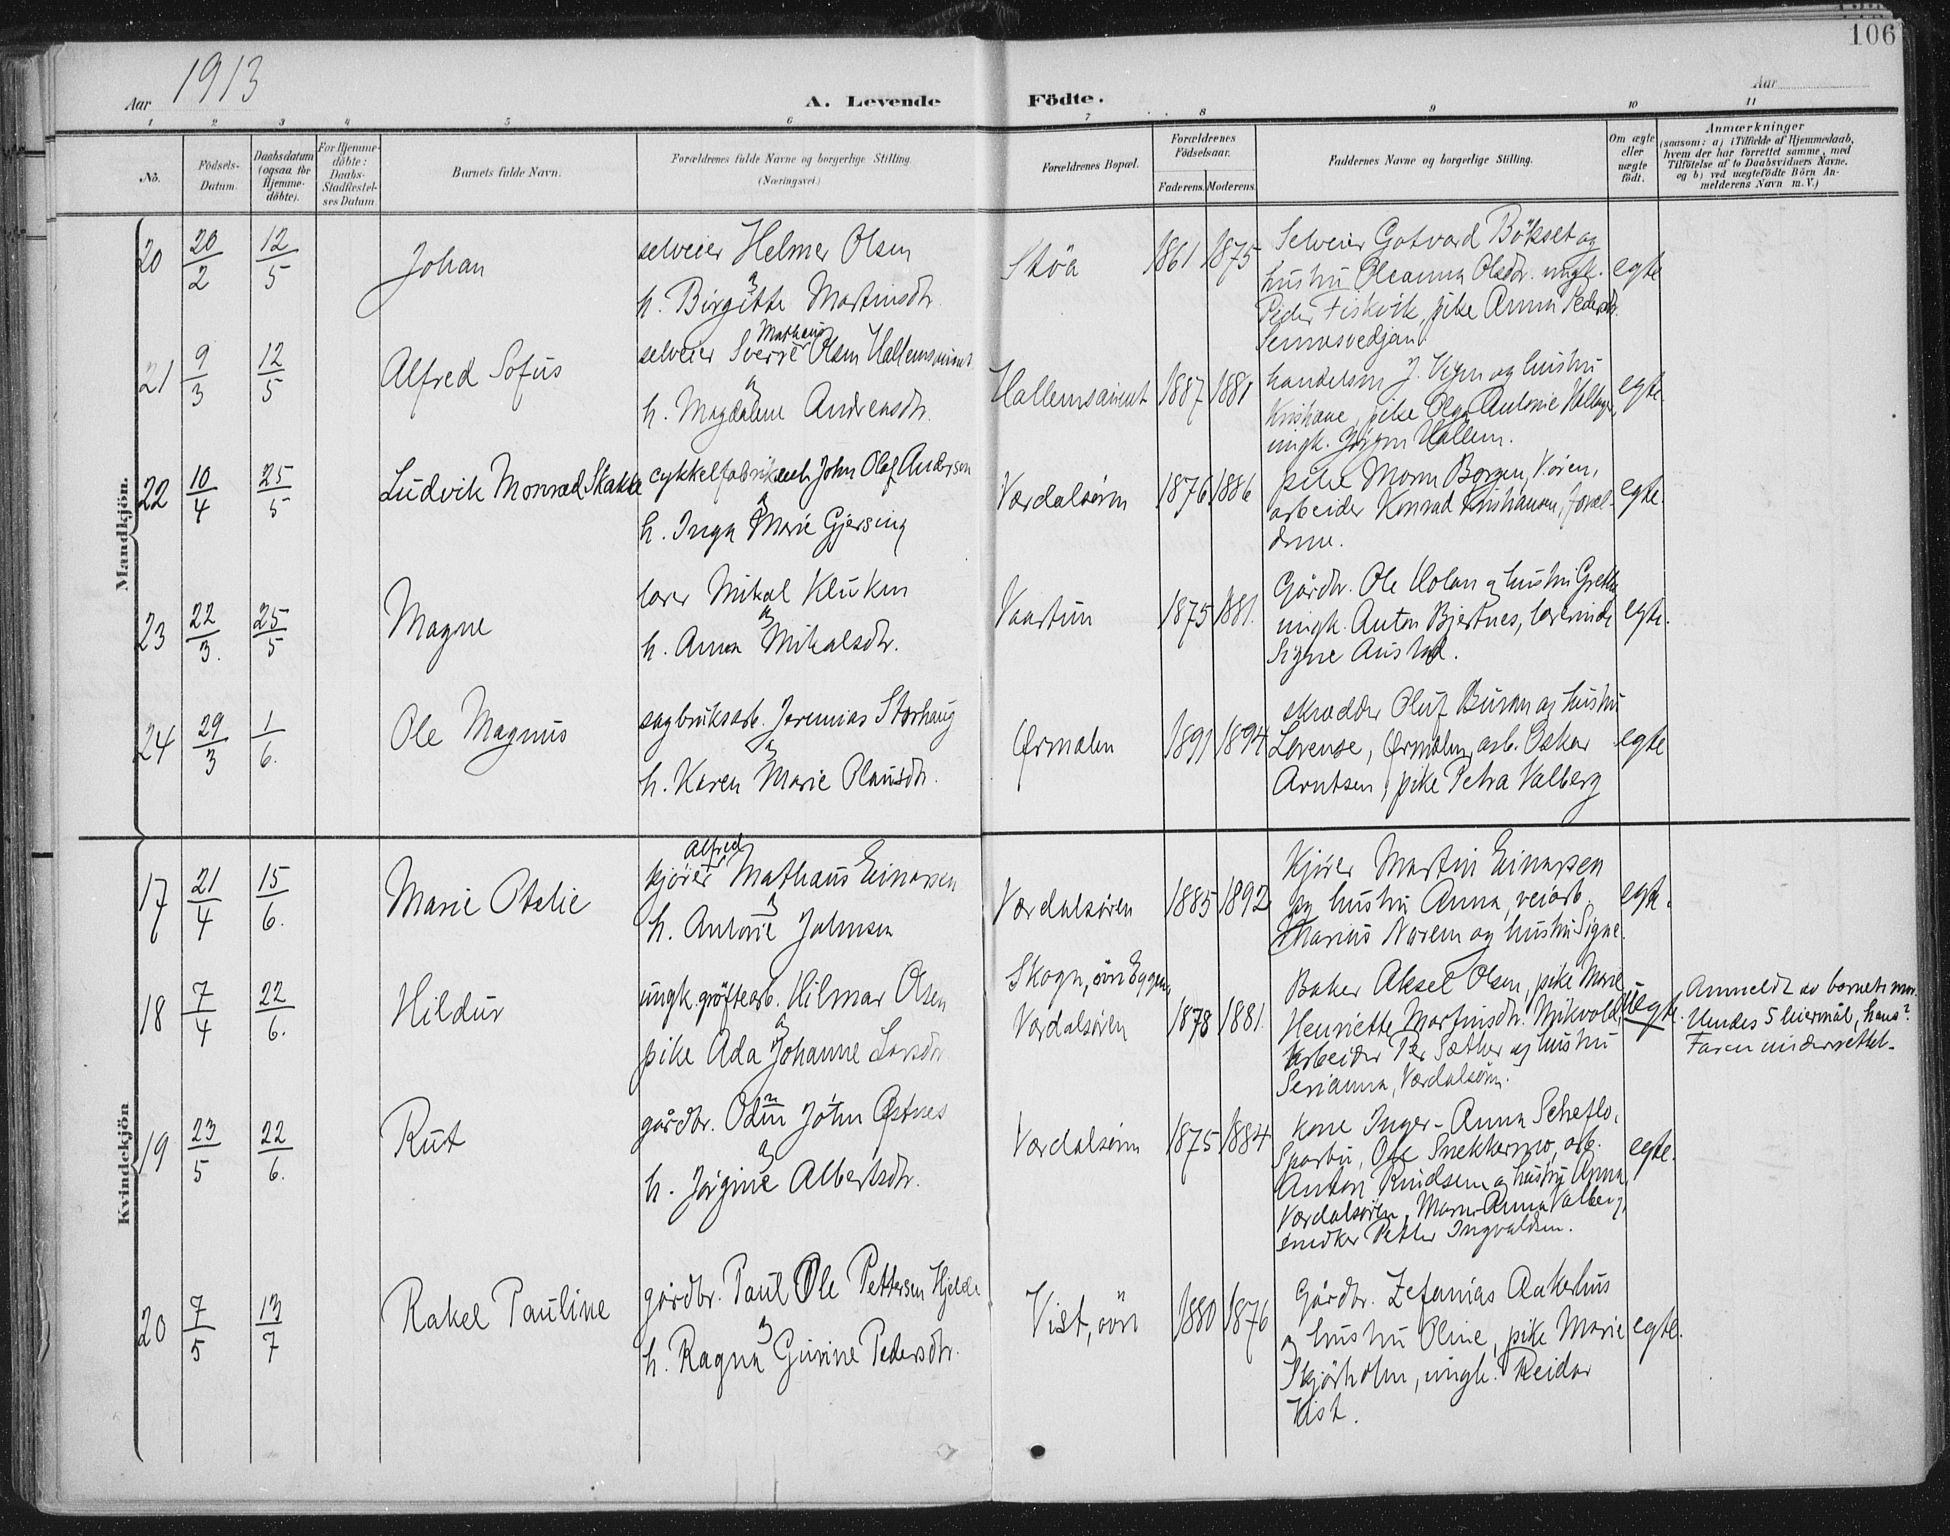 106
Aar 1913
A. Levende Födte.
Aar
1 2 3 4 5 6 7 8 9 10 11
No.
Födsels-Datum.
Daabsdatum (ogsaa for Hjemme-döbte).
For Hjemme-döbte: Daabs-Stadfæstel-ses Datum
Barnets fulde Navn.
Forældrenes fulde Navne og borgerlige Stilling.
(Næringsvei.)
Forældrenes Bopæl.
Forældrenes Födselsaar.
Faderens. Moderens.
Faddernes Navne og borgerlige Stilling.
Om ægte eller uægte födt.
Anmærkninger
(saasom: a) i Tilfælde af Hjemmedaab,
hvem der har forrettet samme, med
Tilföielse af to Daabsvidners Navne.
og b) ved uægtefödte Börn An-
melderens Navn m. V.)
Mandkjön.
20 20/2 12/5 Johan
selveier Helmer Olsen
h. Birgitte Martinsdtr.
Stöa 1861 1875
Selveier Gotvard Bökset og
hustru Oleanna Olsdtr. ungk.
Peder Fiskvik, pike Anna Pedersdtr.
egte
21 9/3 12/5 Alfred Sofus
Mathæus
selveier Sverre Olsen Hallemsaunet
h. Magdalene Andreasdtr.
Hallemsaunet 1887 1881
handelsm J. og hustru
pike Olga Antonie
ungk. Jörgen Hallem.
egte.
22 10/4 25/5 Ludvik Monrad Stakke
cykkelfabrikant John Olaf Anderson
h. Inga Marie Gjersing
Værdalsören 1876 1886
pike Borgen, Tören,
arbeider Konrad Kristiansen, foræl-
drene.
egte.
23 22/3. 25/5 Magne
lærer Mikal Kluken
h. Anna Mikalsdtr.
Vaartun 1875 1881.
Gårdbr. Ole Holan og hustru Grethe
ungk. Anton Bjertnes, lærerinde
Signe Austad.
egte.
24 29/3 1/6. Ole Magnus
sagbruksarb. Jeremias Storhaug
h. Karen Marie Olausdtr.
Ørmelen 1891 1894
skrædder Oluf Buran og hustru
Lorense, Ørmelen, arb. Oskar
Arntsen, pike Petra Valberg
egte
Kvindekjön
17 21/4 15/6. Marie Otelie
Alfred
kjörer Mathæus Einarsen
h. Antonie Johnsen
Værdalsören 1885 1892
Kjörer Martin Einarsen
og hustru Anna, veiarb.
Marius Norem og hustru Signe.
egte.
18 7/4 22/6. Hildur
ungk. gröftearb. Hilmar Olsen
pike Ada Johanne Larsdtr.
Skogn, övre Eggen,
Værdalsören 1878 1881.
Baker Aksel Olsen, pike Marie
Henriette Martinsdtr. Mikvold,
Arbeider Per Sæther og hustru
Serianna, Værdalsören.
uegte.
Anmeldt av barnets mor.
Hendes 5 leiermål, hans?
Faren underrettet.
19 23/5 22/6. Rut
gårdbr. Odin John Østnes
h. Jörgine Albertsdtr.
Værdalsören 1875 1884
kone Inger-Anna Scheflo,
Sparbu, Ole Snekkermo, arb.
Anton Knudsen og hustru Anna,
Værdalsören, Maren-Anna Valberg,
snedker Petter Ingvaldsen.
egte.
20 7/5 13/7 Rakel Pauline
gårdbr. Paul Ole Pettersen Hjelde
h. Ragna Gurine Pedersdtr.
Vist, övre 1880 1876
Gårdbr. Zefanias Aakerhus
og hustru Oline, pike Marie
Skjörholm, ungk. Reidar
Vist.
egte.